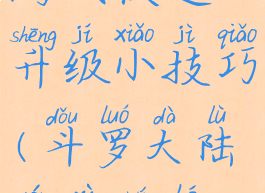 shēng jí xiǎo jì qiǎo
升级小技巧
dǒu luó dà lù
(斗罗大陆